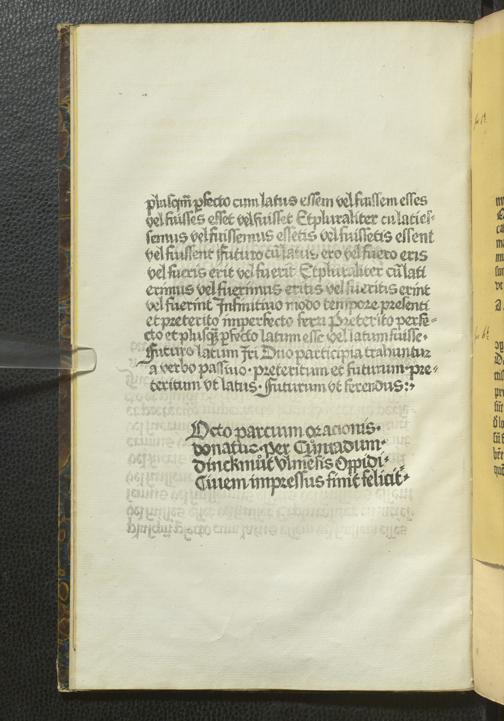 plusq̃m ꝑfecto cum latus essem vel fuissem esses
vel fuisses esset vel fuisset Et pluraliter cũ latiel-
semus vel fuissemus essetis vel fuissetis essent
vel fuissent Futuro cũ latus, ero vel fuero eris
vel fueris erit vel fuerit Et pluraliter cũ lati
erimus vel fuerimus eritis vel fueritis erint
vel fuerint Infinitiuo modo tempore presenti
et preterito imperfecto ferri Preterito perfe-
cto et plusq̃ ꝑfecto latum esse vel latum fuisse·
Futuro latum iri Duo participia trahuntur
a verbo passiuo· preteritum et futurum· pre-
teritum vt latus· Futurum vt ferendus:·
Octo parcium oracionis·
donatus· per Cũnradum·
dinckmut vlmẽsis Oppidi·
Ciuem impressus finit felicit̃·